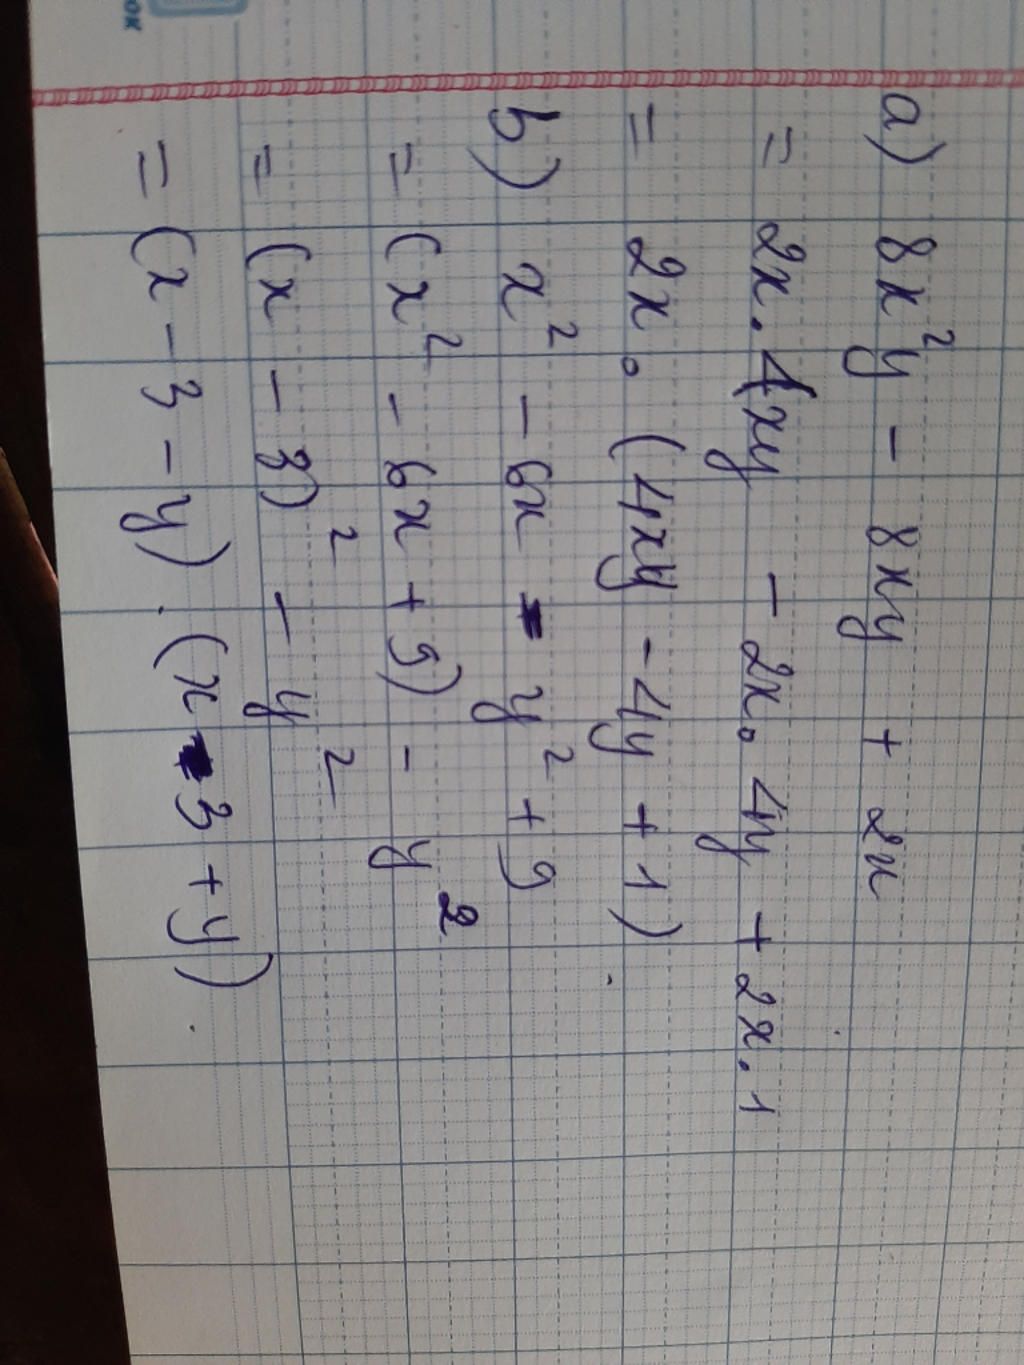 a) 8x² y - 8xy + 2x
= 2x . 4xy - 2x . 4y + 2x . 1
= 2x . (4xy - 4y + 1)
b) x² - 6x - y² + 9
= (x² - 6x + 9) - y²
= (x - 3)² - y²
= (x - 3 - y) . (x - 3 + y)